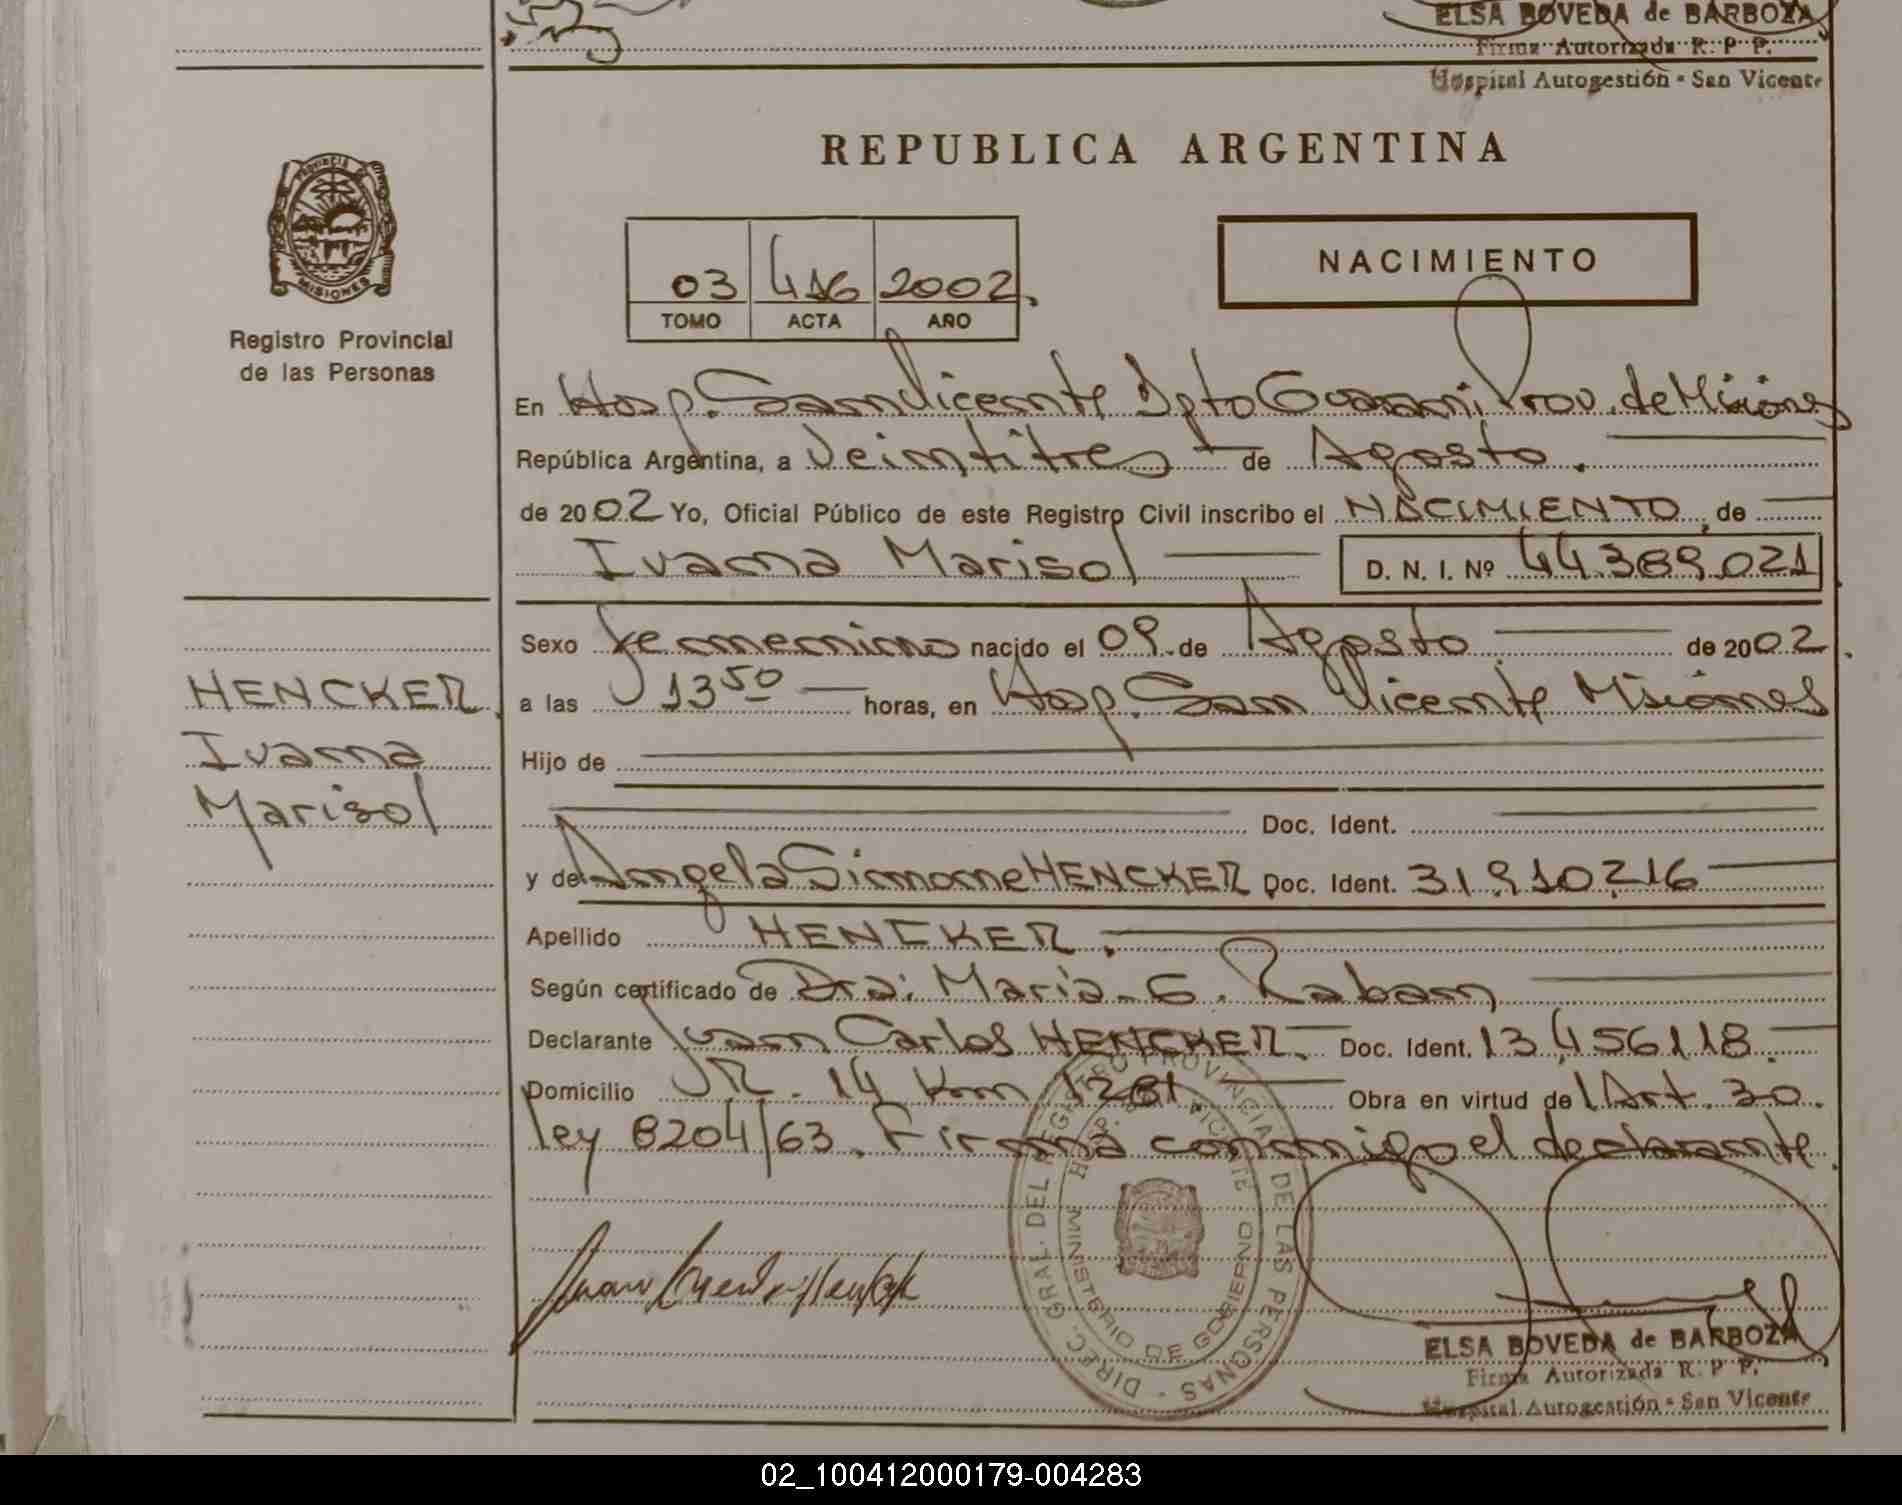 ELSA BOVEDA de BARBOZA
Firma Autorizada R. P. P.
Hospital Autogestión - San Vicente
REPUBLICA ARGENTINA
PROVINCIA DE
MISIONES
Registro Provincial
de las Personas
03 416 2002
TOMO ACTA AÑO
NACIMIENTO
En Hosp. San Vicente Dpto Guaraní Prov. de Misiones
República Argentina, a Veintitres de Agosto.
de 2002 Yo, Oficial Público de este Registro Civil inscribo el NACIMIENTO, de
Ivana Marisol D. N. I. Nº 44.389.021
Sexo femenino nacido el 09 de Agosto de 2002.
HENCKER
Ivana
Marisol
a las 13 50 horas, en Hosp. San Vicente Misiones
Hijo de
Doc. Ident.
y de Angela Simone HENCKER Doc. Ident. 31.910.216
Apellido HENCKER.
Según certificado de Dra: Maria G. Raban
Declarante Juan Carlos HENCKER. Doc. Ident. 13.456.118.
Domicilio R. 14 Km 1281 Obra en virtud del Art. 30.
ley 8204/63. Firma conmigo el declarante.
DIREC. GRAL. DEL REGISTRO PROVINCIAL DE LAS PERSONAS
HOSP. S. VICENTE
MINISTERIO DE GOBIERNO
ELSA BOVEDA de BARBOZA
Firma Autorizada R. P. P.
Hospital Autogestión - San Vicente
02_100412000179-004283